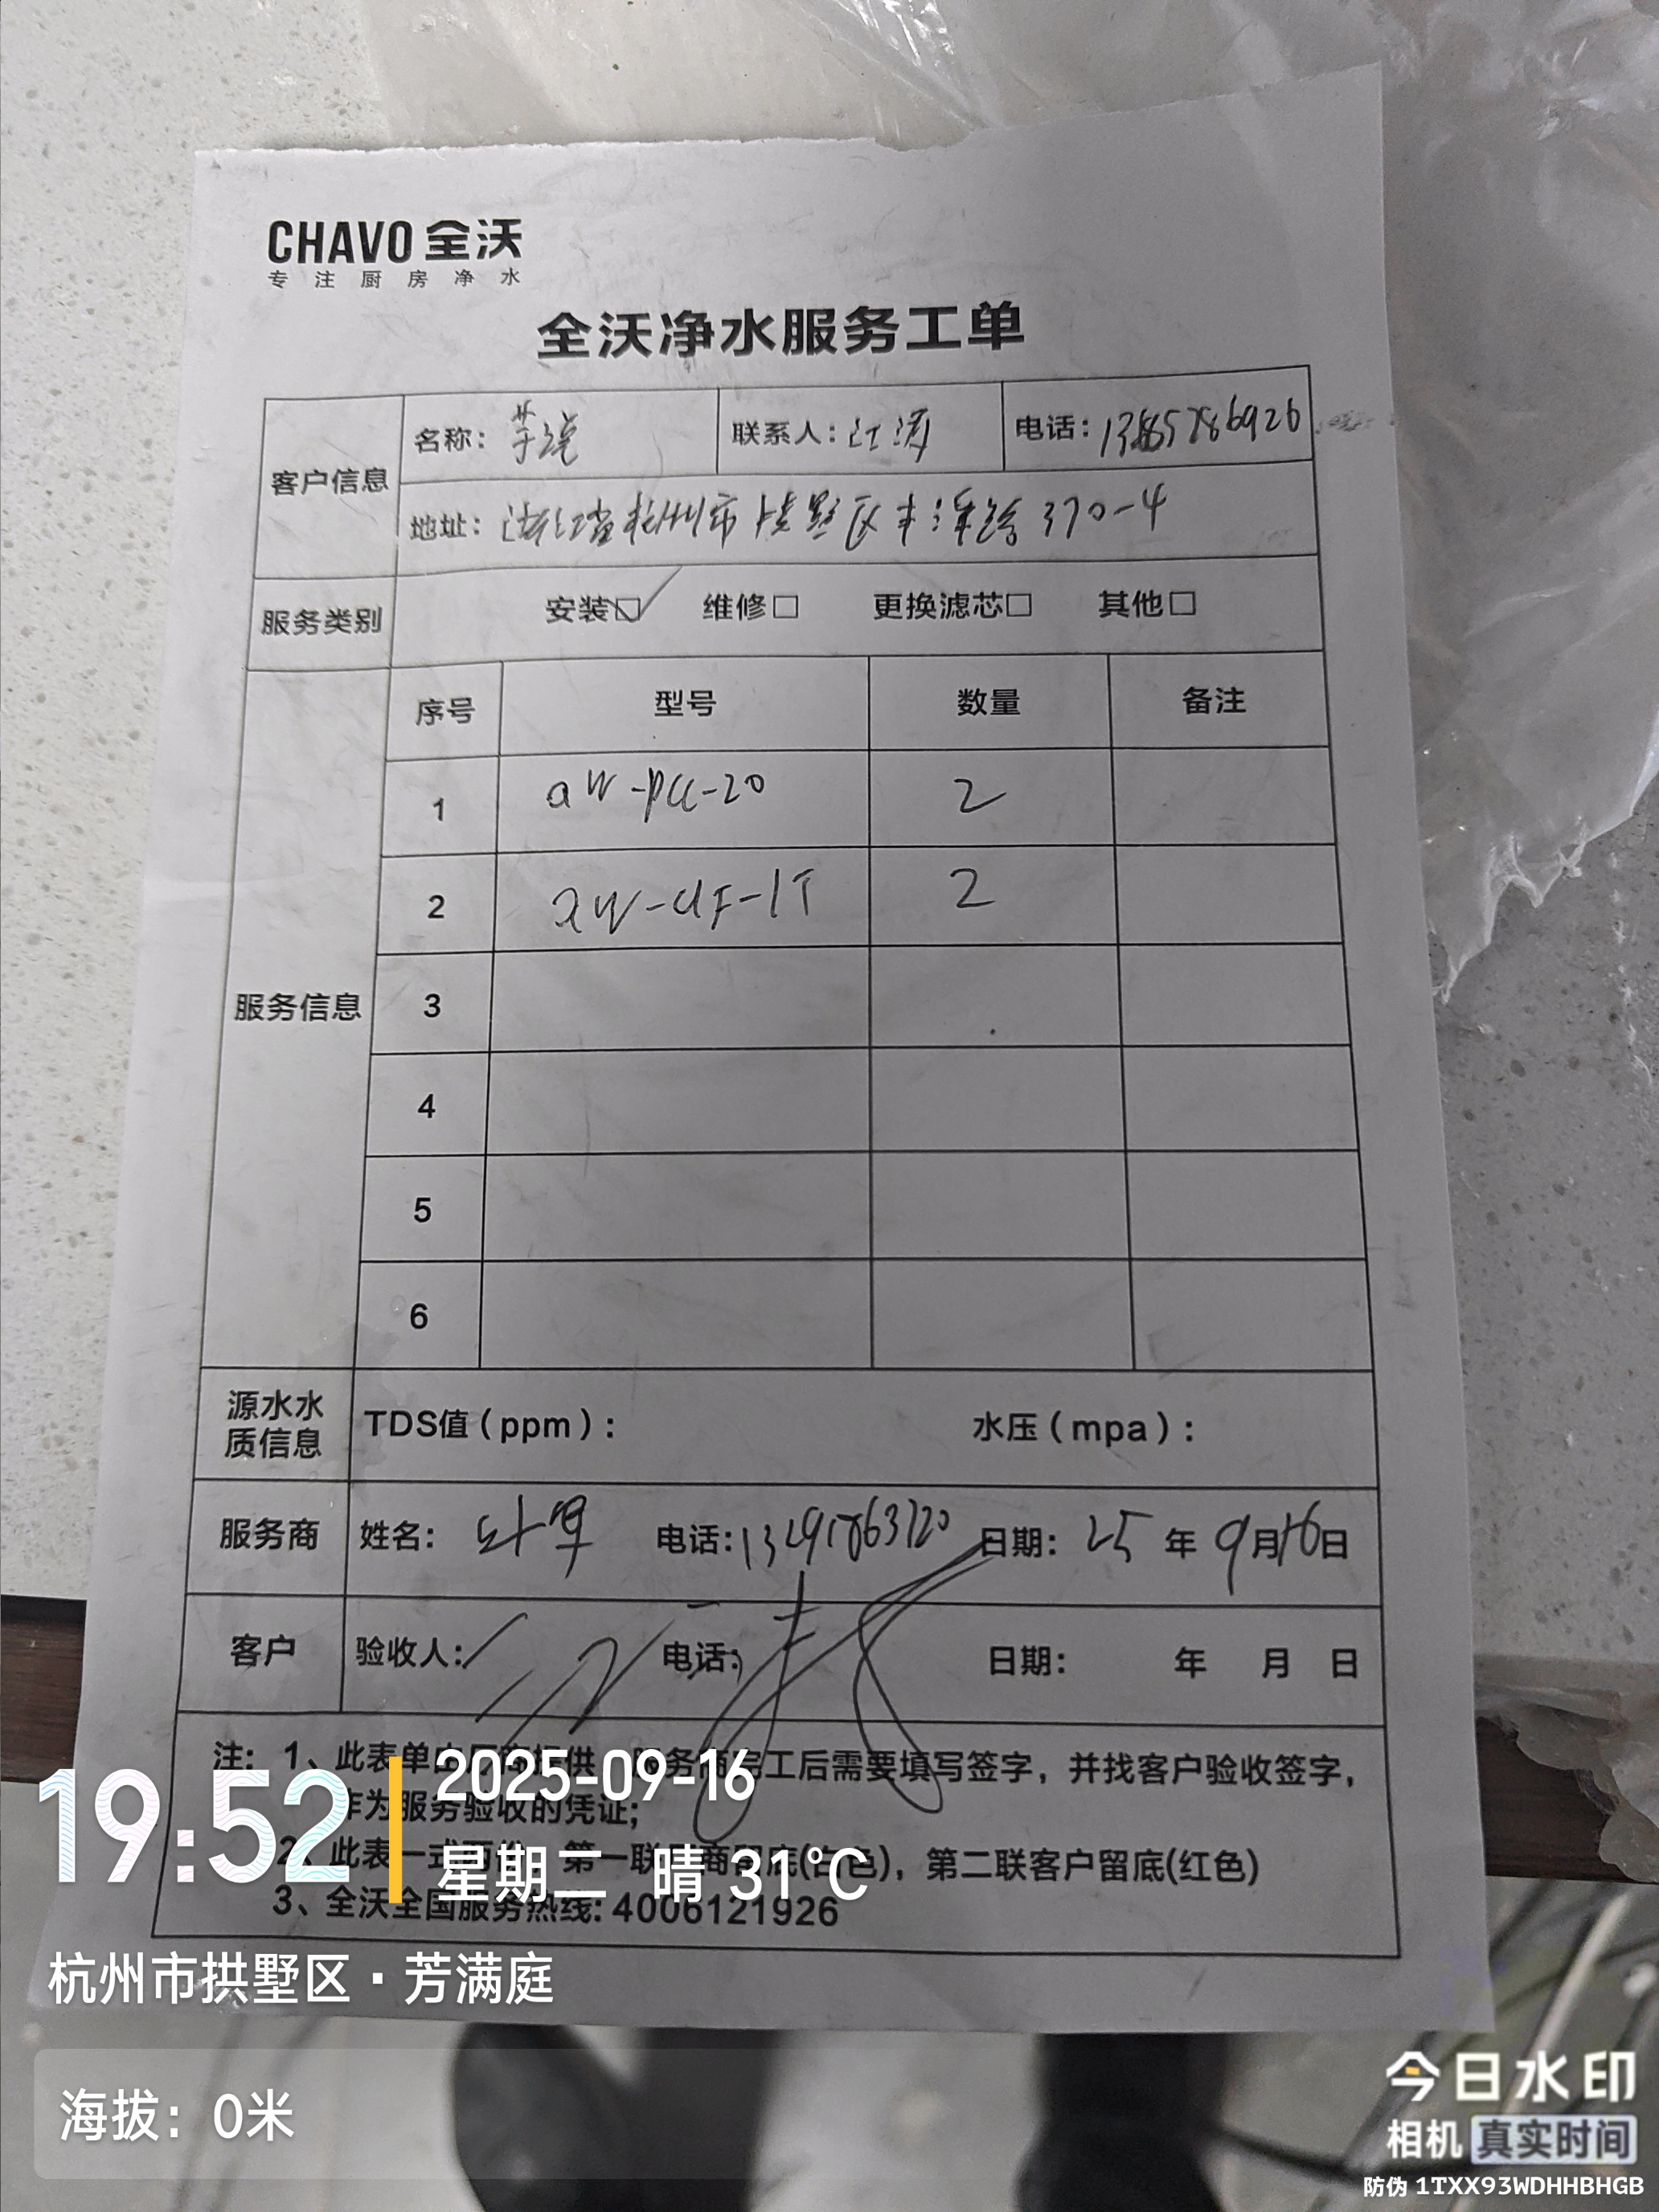 CHAVO 全沃
专注厨房净水
全沃净水服务工单
客户信息
名称：
联系人：江涛
电话：
地址：浙江省杭州市拱墅区丰潭路370-4
服务类别
安装☑ 维修□ 更换滤芯□ 其他□
服务信息
序号 型号 数量 备注
1 aw-pcc-20 2
2 2
3
4
5
6
源水水质信息
TDS值（ppm）： 水压（mpa）：
服务商
姓名：叶军 电话： 日期：25年9月16日
客户
验收人： 电话： 日期： 年 月 日
注：1、此表单由厂商提供，服务商完工后需要填写签字，并找客户验收签字，
作为服务验收的凭证；
2、此表一式两份，第一联厂商留底(白色)，第二联客户留底(红色)
3、全沃全国服务热线：4006121926
19:52
2025-09-16
星期二 晴 31℃
杭州市拱墅区·芳满庭
海拔：0米
今日水印
相机 真实时间
防伪 1TXX93WDHHBHGB